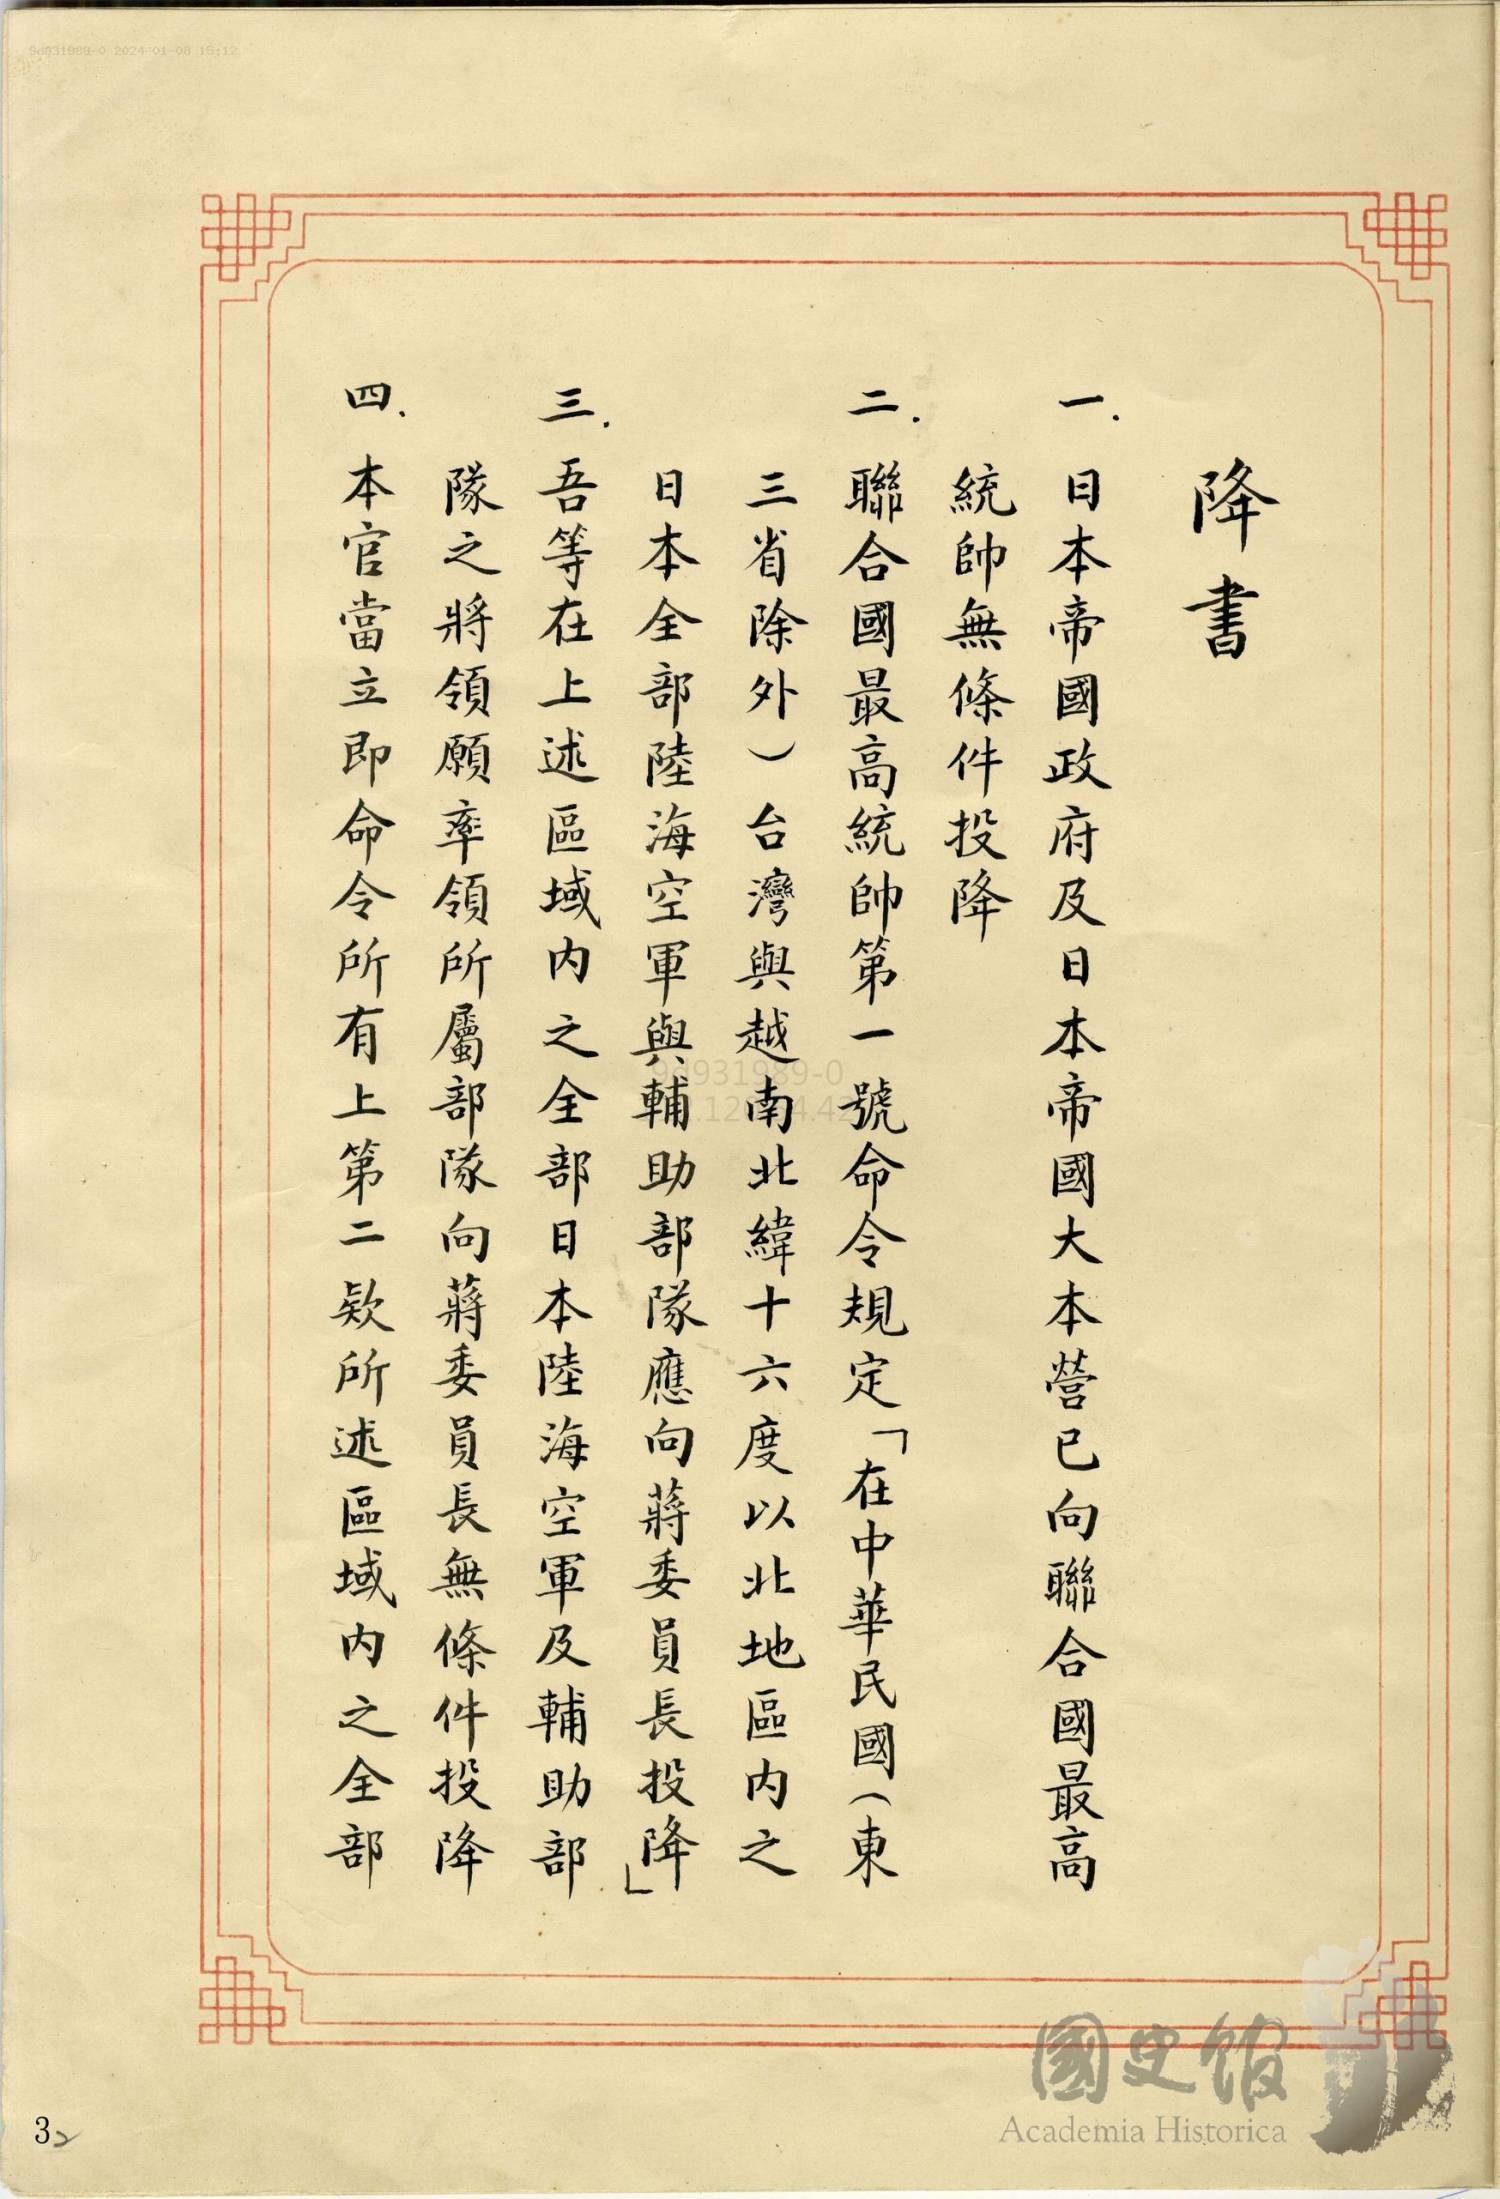 9d931989-0 2024-01-08 15:12
降書
一. 日本帝國政府及日本帝國大本營已向聯合國最高
統帥無條件投降
二. 聯合國最高統帥第一號命令規定「在中華民國(東
三省除外)台灣與越南北緯十六度以北地區内之
日本全部陸海空軍與輔助部隊應向蔣委員長投降」
三. 吾等在上述區域内之全部日本陸海空軍及輔助部
隊之將領願率領所屬部隊向蔣委員長無條件投降
四. 本官當立即命令所有上第二欵所述區域内之全部
9d931989-0
國史館
Academia Historica
32